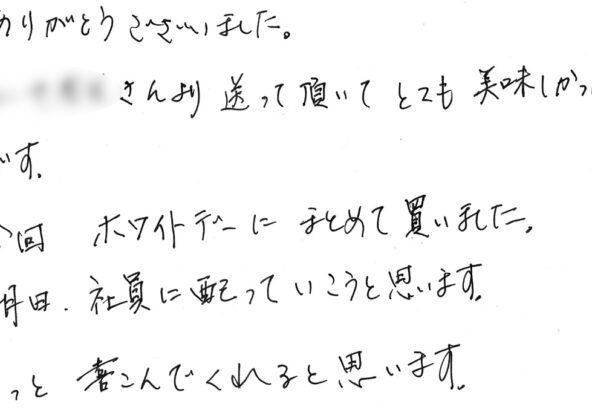 ありがとうございました。
さんより送って頂いてとても美味しかっ
いです。
今回 ホワイトデーにまとめて買いました。
明日.社員に配っていこうと思います。
っと喜こんでくれると思います。